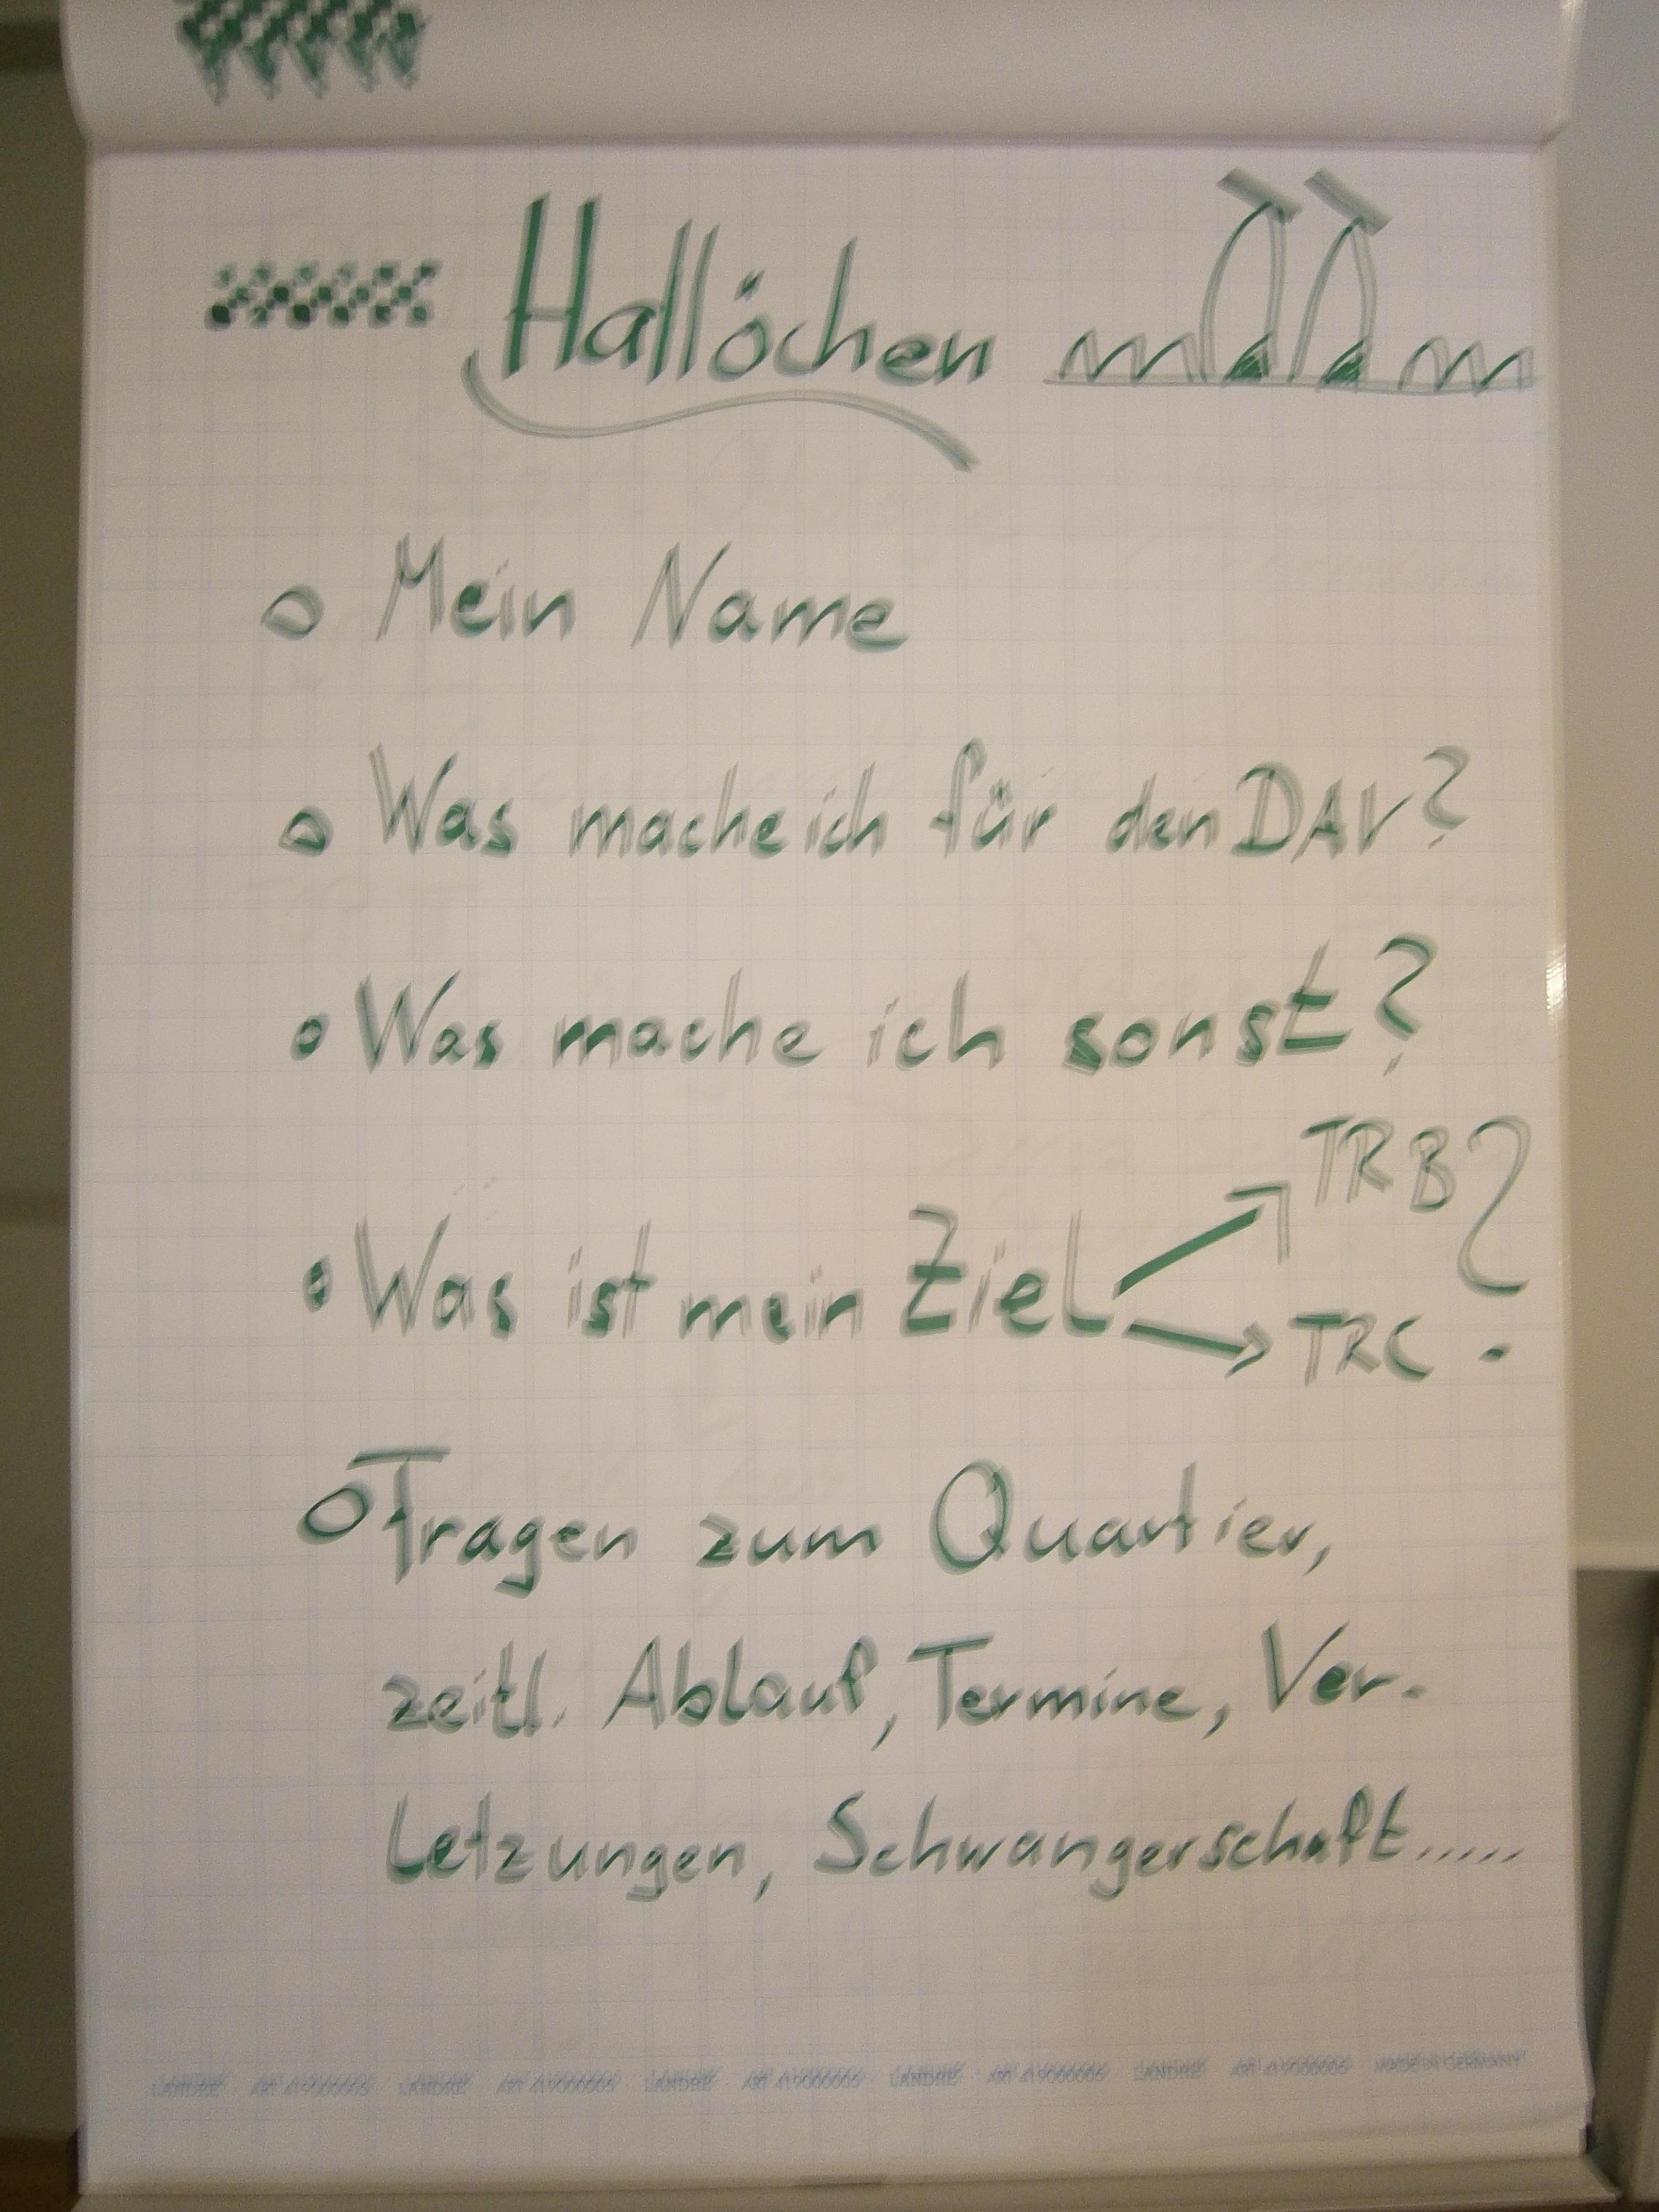 Hallöchen
Mein Name
Was mache ich für den DAV?
Was mache ich sonst?
TRB ?
Was ist mein Ziel
TRC
Fragen zum Quartier,
zeitl. Ablauf, Termine, Ver-
letzungen, Schwangerschaft.....
LANDRÉ LANDRÉ LANDRÉ LANDRÉ LANDRÉ MADE IN GERMANY